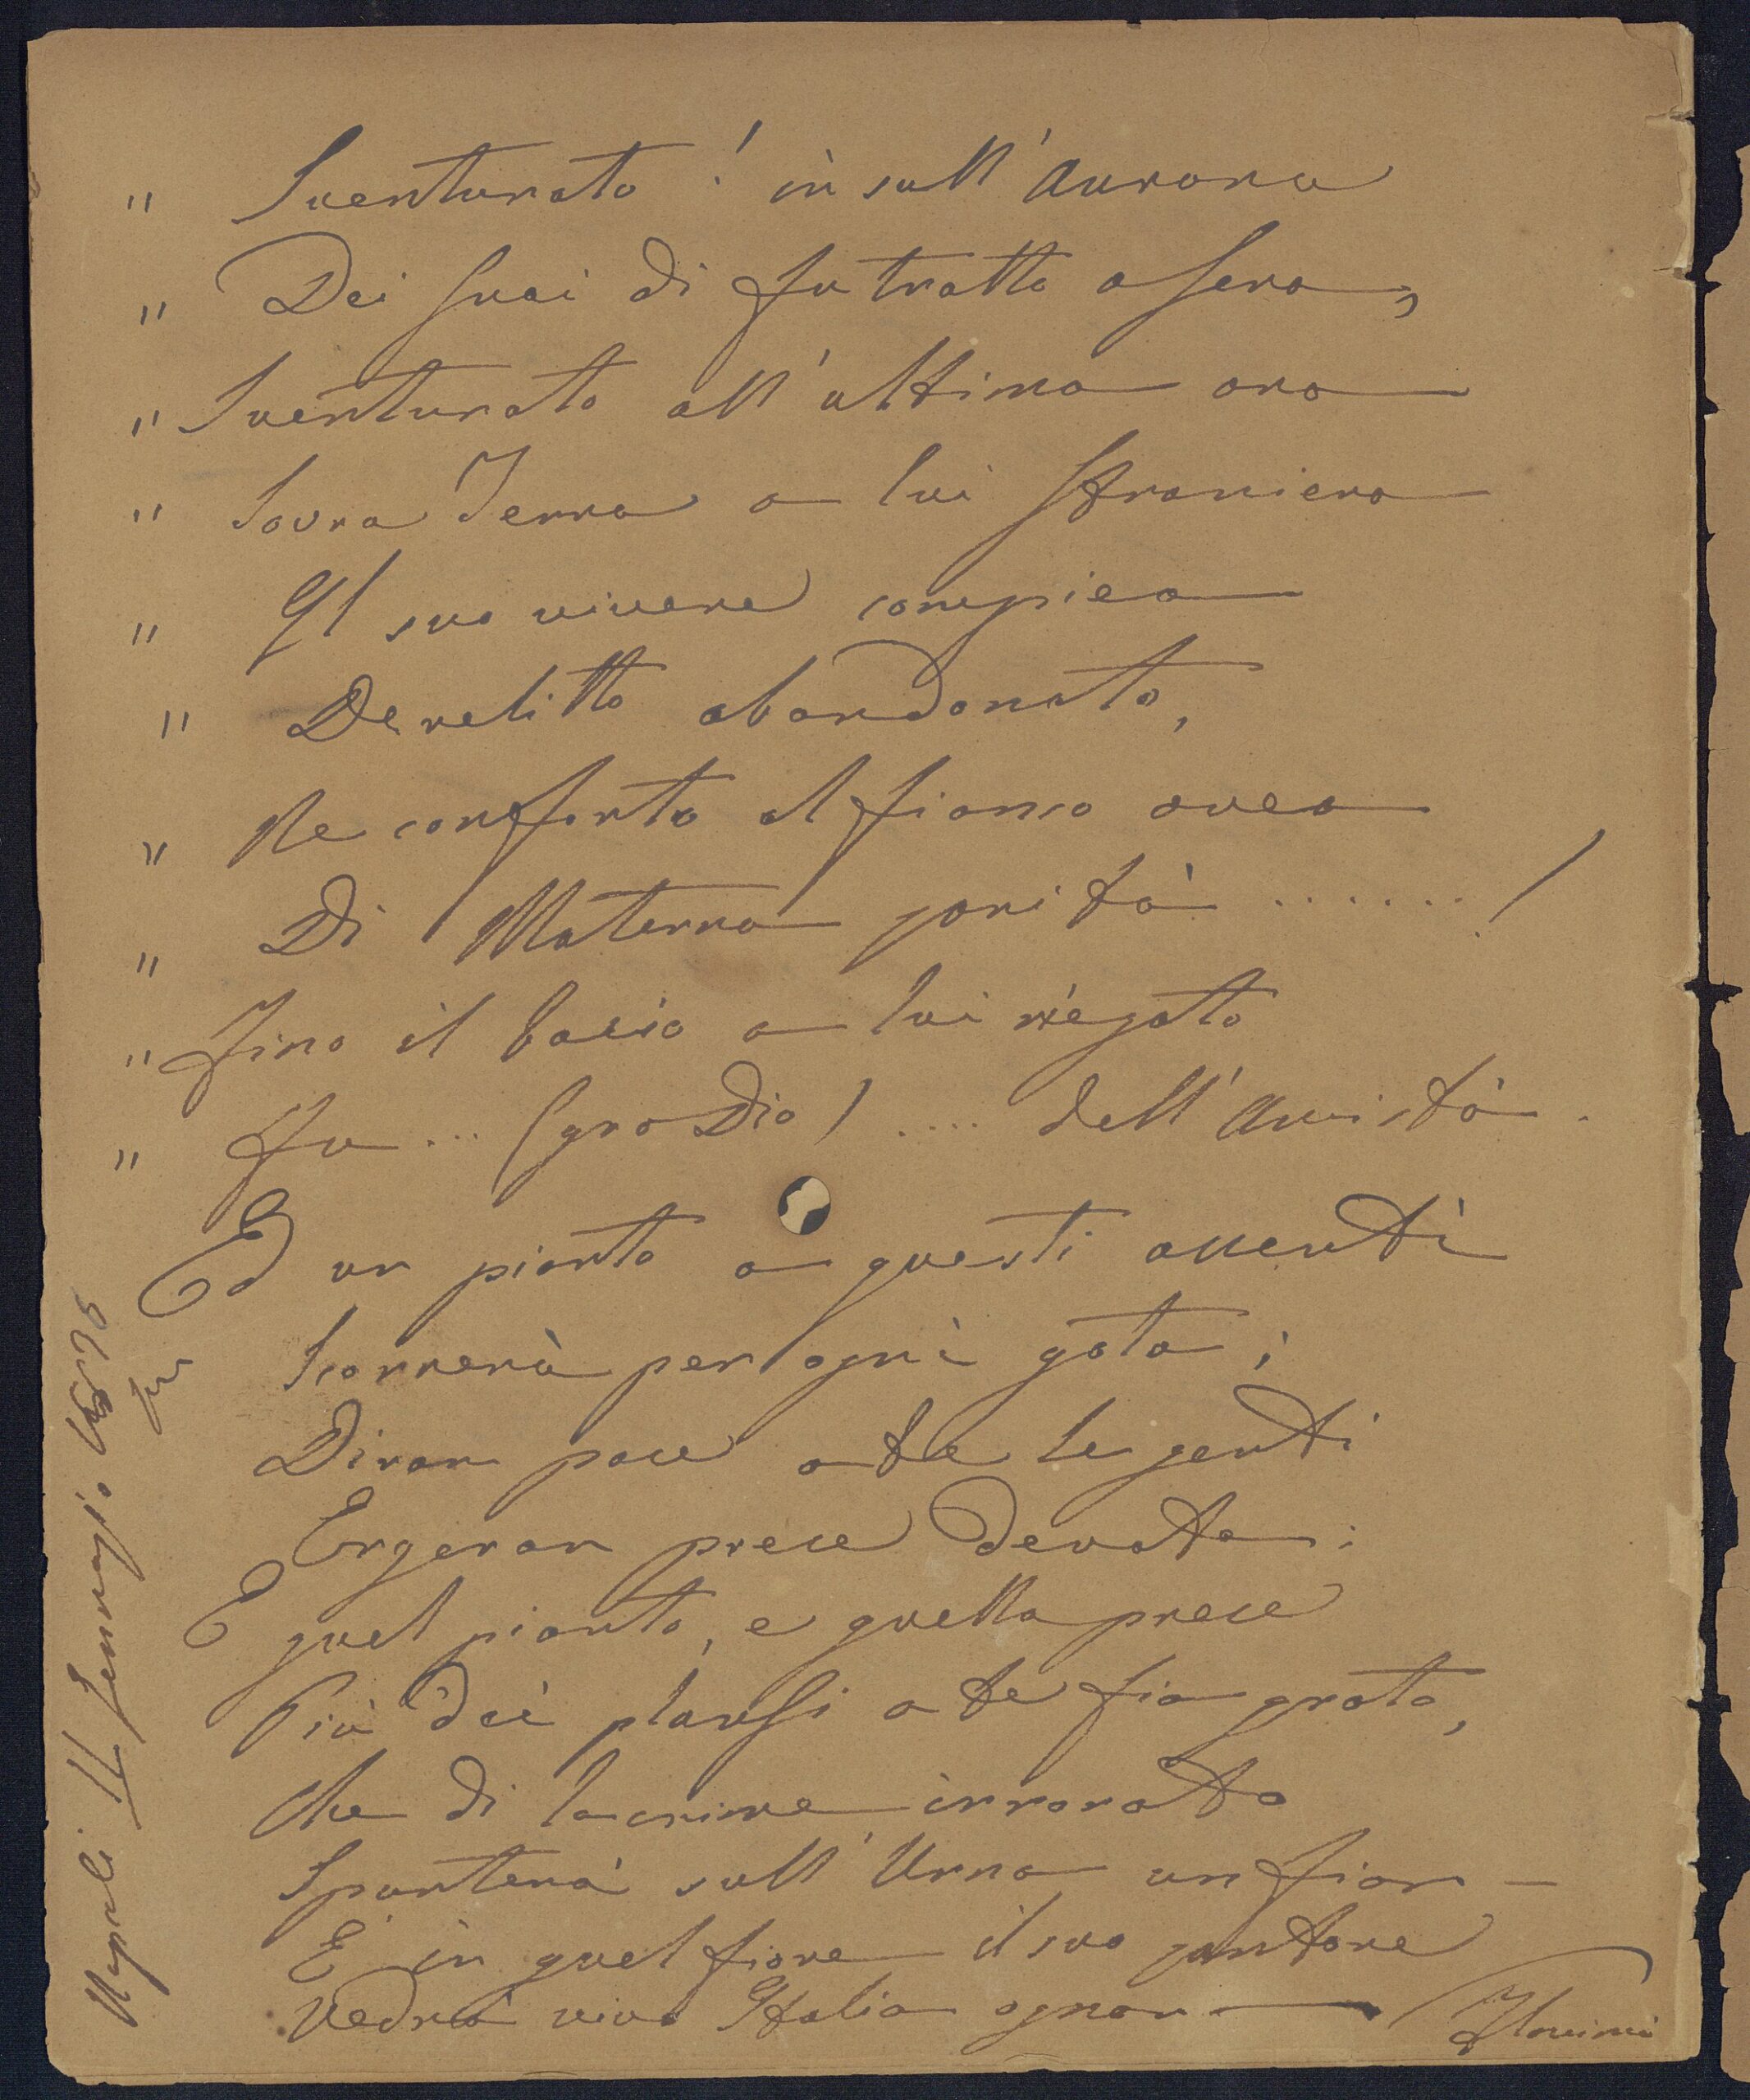 " Sventurato! in sull'Aurora
" Dei suoi dì fu tratto a sera,
" Sventurato all'ultima ora
" Sovra Terra a lui straniera
" Il suo vivere compiea
" Derelitto abandonato,
" Ne conforto al fianco avea
" Di Materna carità .......!
" Fino il bacio a lui niegato
" Fu ... (gra Dio) .... dell'Amistà.
Ed un pianto a questi accenti
Scorrerà per ogni gota;
Diran pace a te le genti
Ergeran prece devota:
E quel pianto, e quella prece
Più dei plausi a te fia grata,
Che di lacrime irrorato
Spunterà sull'Urna un fior –
E in quel fiore il suo cantore
Vedrà vivo Italia ognor —
Napoli 11 Gennajo 1876